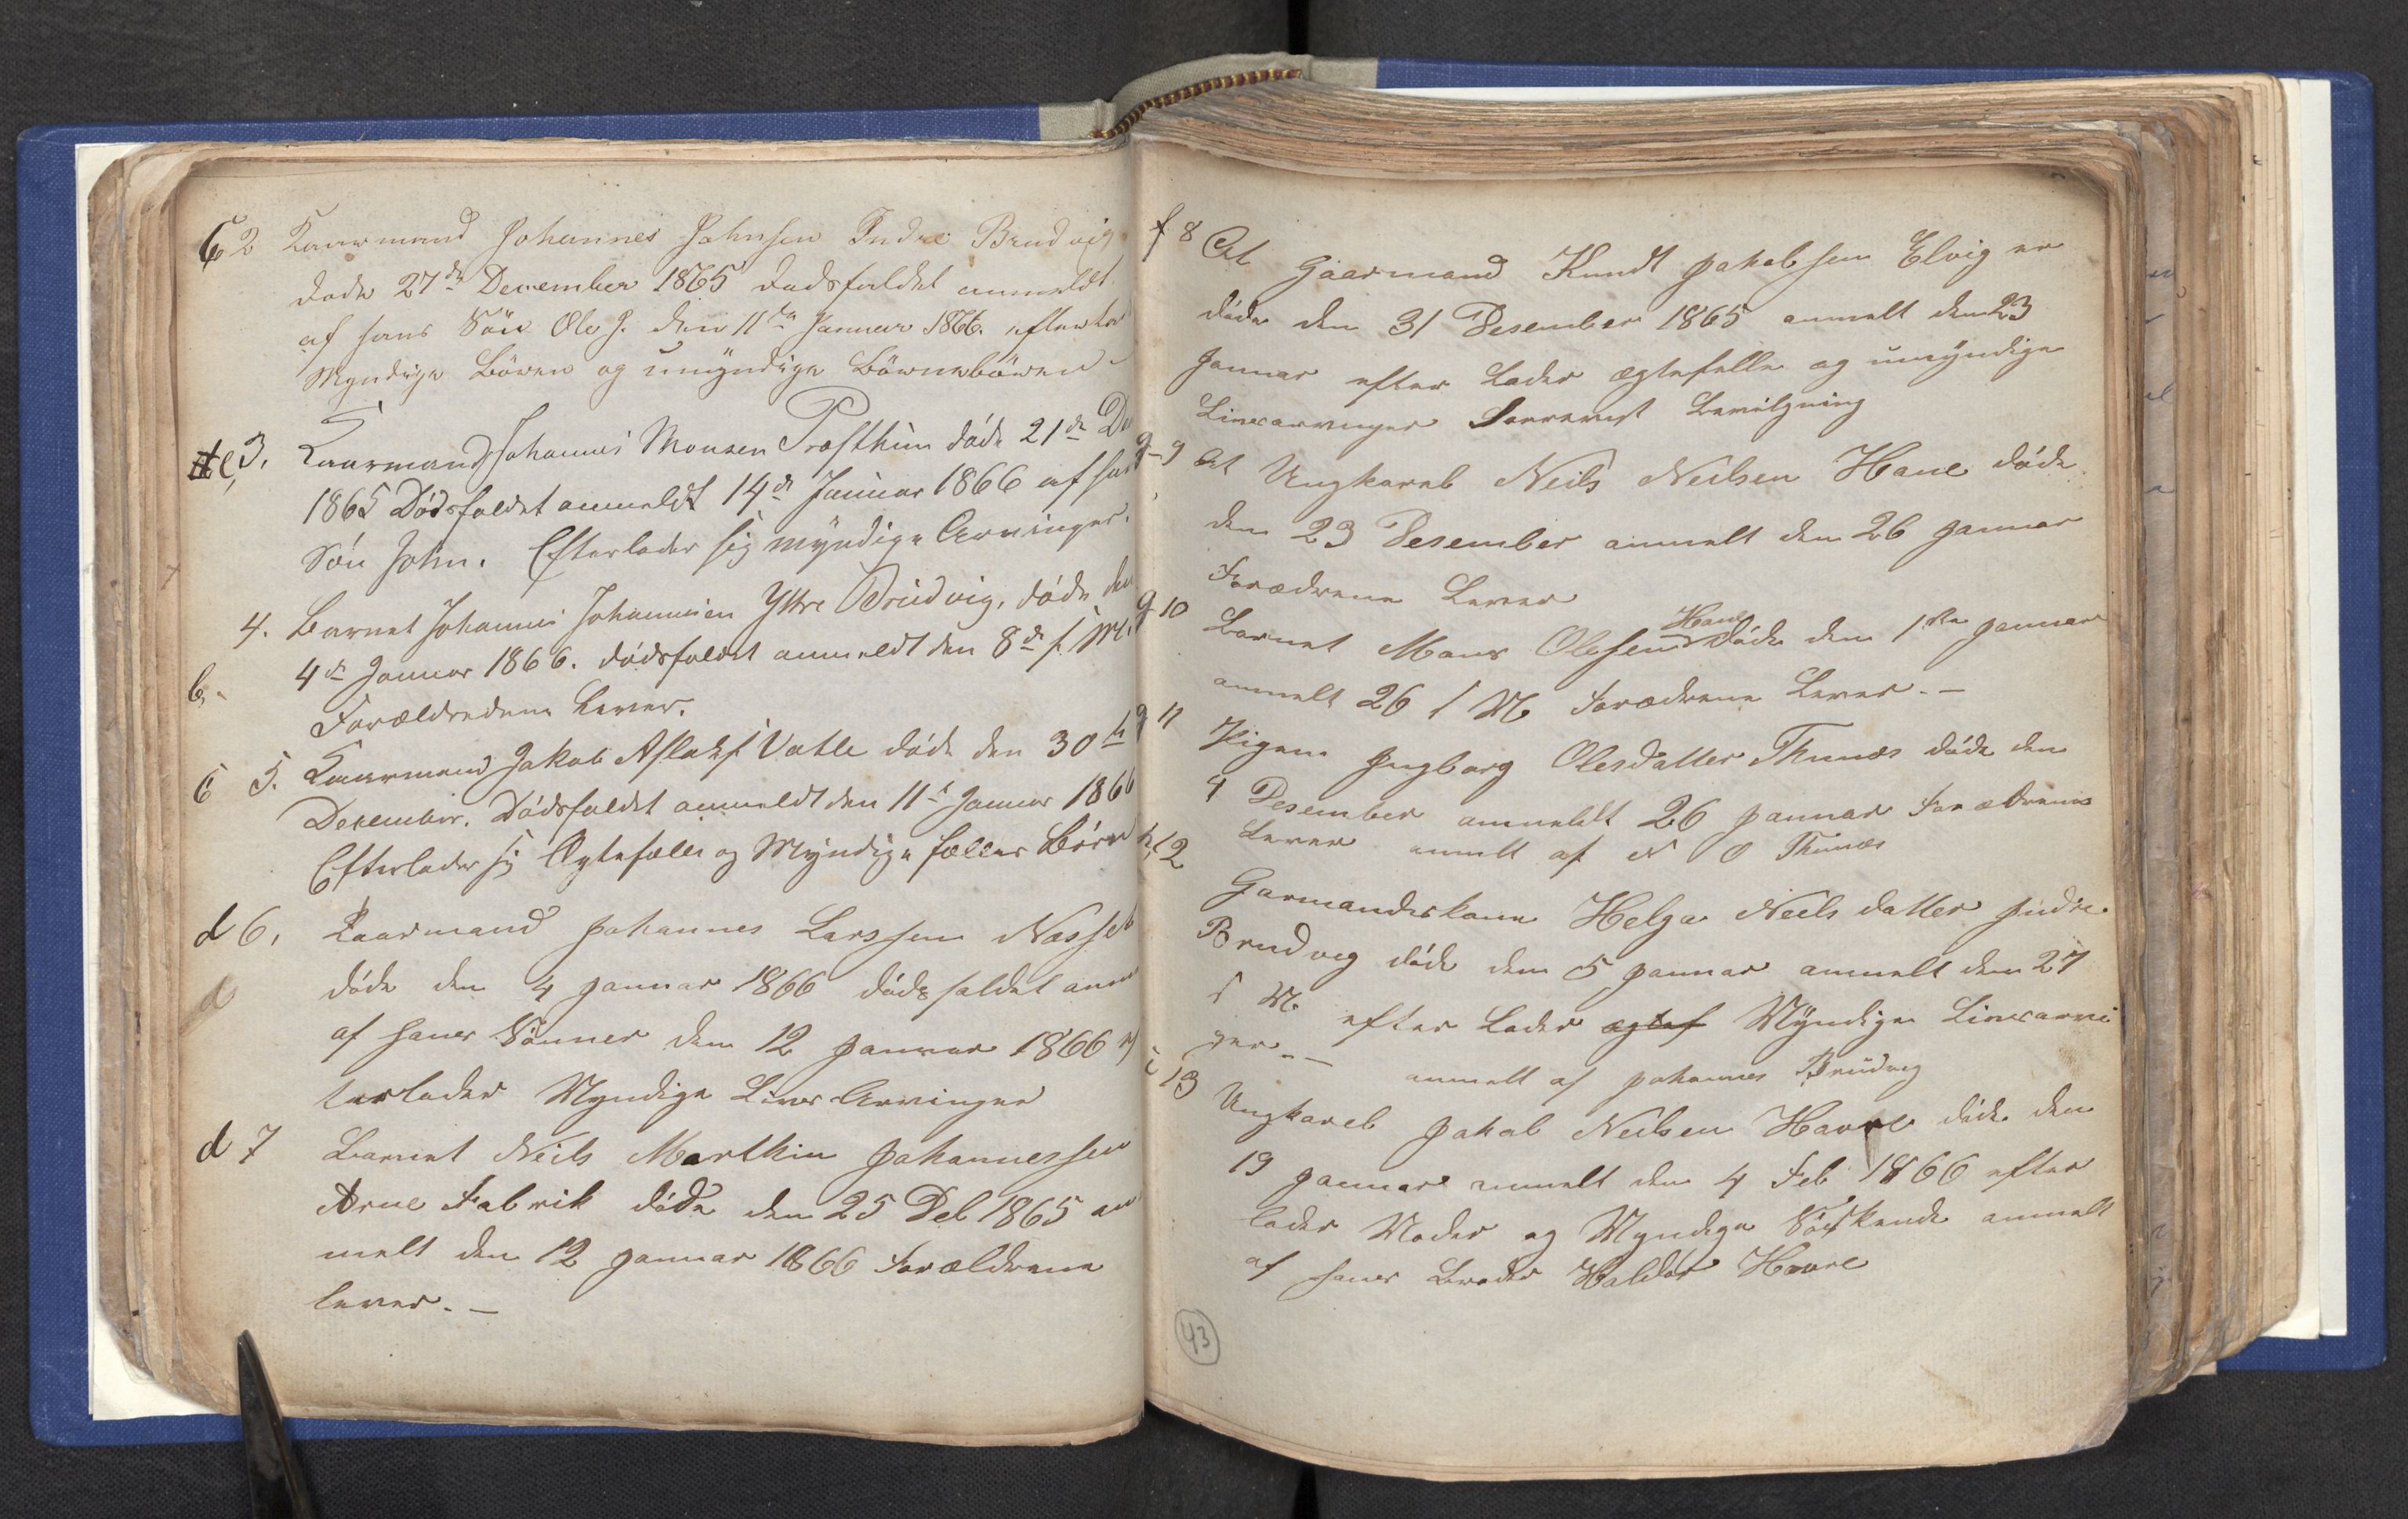 C 2 Kaarmand Johannes Johnsen Indre Brudvig
døde 27de December 1865 Dødsfaldet anmeldt
af hans Søn Ole J. den 11te Januar 1866. efterlod
Myndige Börn og umÿndige Börnebörn
e, 3. Kaarmand Johannes Monsen Præsthun döde 21de De
1865 Dødsfaldet anmeldt 14de Januar 1866 af hans
Sön John. Efterlader sig mÿndige Arvinger.
4. Barnet Johannes Johannesen Ytre Brudvig, döde den
b, 4de Januar 1866. dödsfaldet anmeldt den 8de s. M.
Forældredene Lever.
C 5. Kaarmand Jakob Aslaks Vatle döde den 30te
December. Dödsfaldet anmeldt den 11te Januar 1866
Efterlader sig Ægtefælle og Mÿndige fælles Börn
d 6, Kaarmand Johannes Larssen Næsset
d döde den 4 Januar 1866 dödsfaldet anm
af hans Sönner den 12 Januar 1866 ef
terlader Myndige Livs Arvinger
d 7 Barnet Neils Marthin Johannessen
Arne Fabrik döde den 25 Des 1865 an
melt den 12 Januar 1866 Forældrene
lever. –
f 8 At Gaarmand Knudt Jakobsen Elvig er
döde den 31 Desember 1865 anmelt den 23
Januar efter Lader ægtefelle og umÿndige
Livsarvinger Bevilgning
g 9 At Ungkarel Neils Neilsen Hane döde
den 23 Desember anmelt den 26 Januar
Forædrene Lever
g 10 Barnet Mons Olesen Hane döde den 1ste Januar
anmelt 26 s M Forædrene Lever. –
g 11 Pigen Ingborg Olesdatter Thunæs döde den
4 Desember anmeldt 26 Januar Forædrenes
Lever anmelt af N O Thunæs
h, 12 Garmandskone Helga Neels datter Indre
Brudvig döde den 5 Januar anmelt den 27
s M efter Lader ægtef Mÿndige Livsarvi
ger – anmelt af Johannes Brudvig
i 13 Ungkarel Jakob Neilsen Havre döde den
19 Januar anmelt den 4 Feb 1866 efter
lader Moder og Myndige Söskende anmelt
af hans Broder Haldor Havre
43